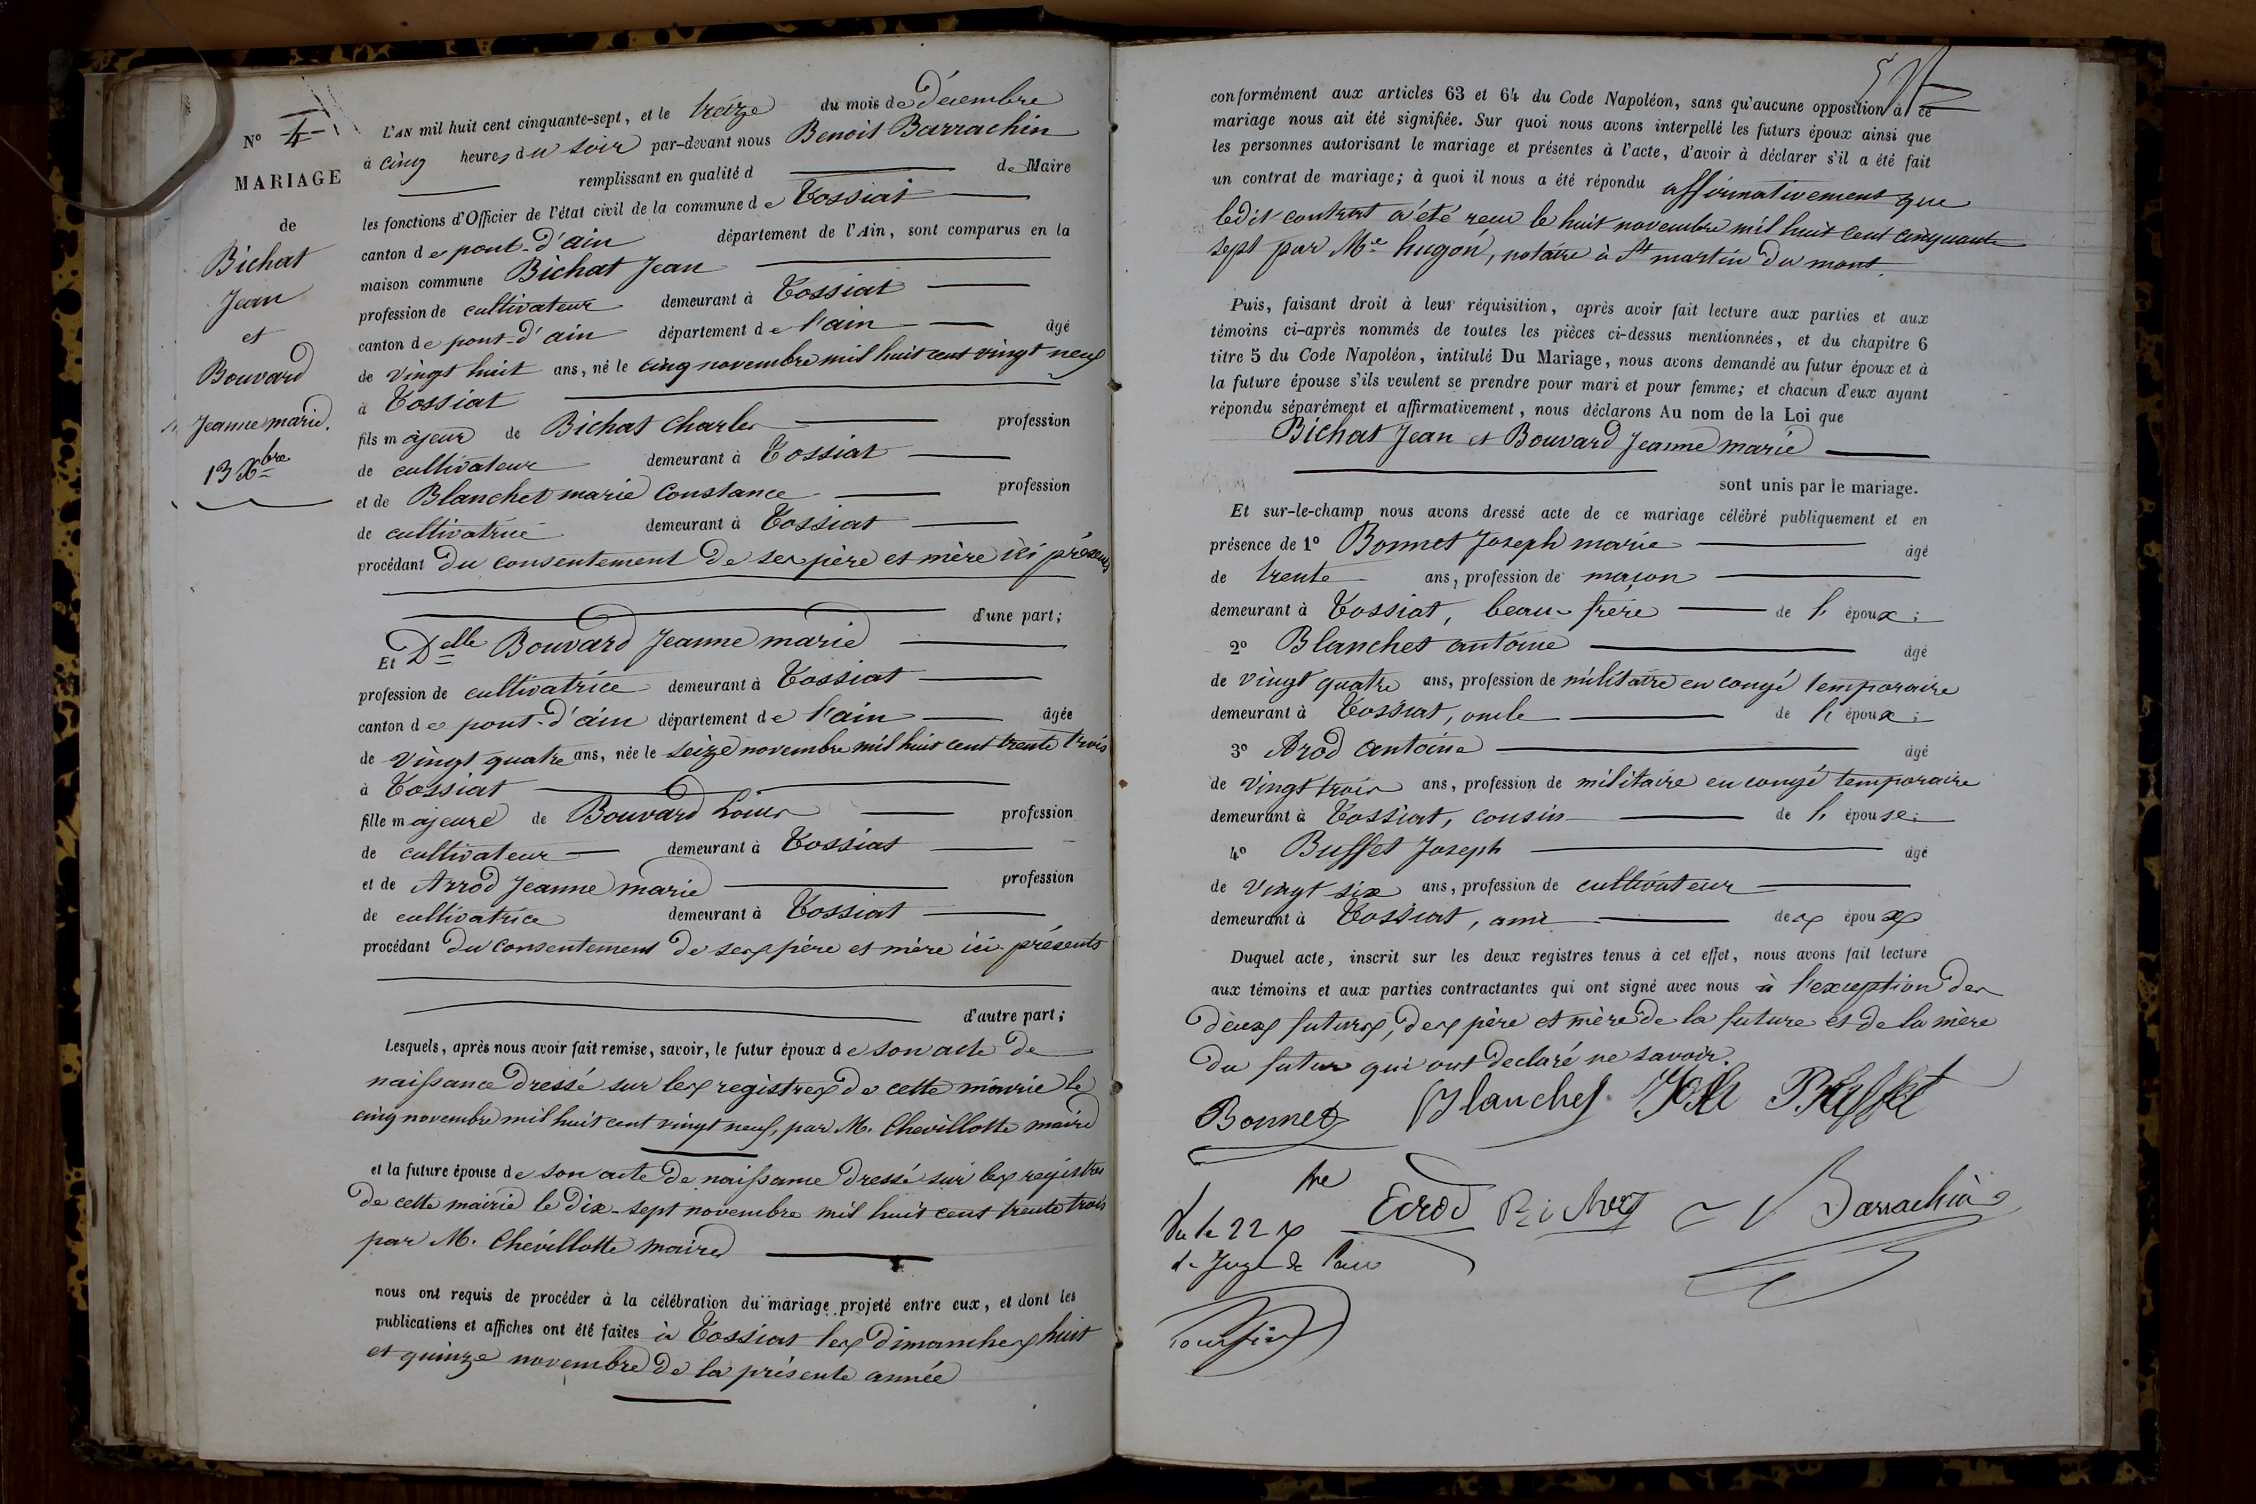 N° 4
MARIAGE
de
Bichat
Jean
et
Bouvard
Jeanne marie.
13 Xbre
L'AN mil huit cent cinquante-sept, et le treize du mois de Décembre
à cinq heures du soir par-devant nous Benoit Barrachin
remplissant en qualité d de Maire
les fonctions d'Officier de l'état civil de la commune de Tossiat
canton de pont-d'ain département de l'Ain, sont comparus en la
maison commune Bichat Jean
profession de cultivateur demeurant à Tossiat
canton de pont-d'ain département de l'ain âgé
de vingt huit ans, né le cinq novembre mil huit cent vingt neuf
à Tossiat
fils majeur de Bichat Charles profession
de cultivateur demeurant à Tossiat
et de Blanchet marie Constance profession
de cultivatrice demeurant à Tossiat
procédant du consentement de ses père et mère ici présents
d'une part;
Et Delle Bouvard Jeanne marie
profession de cultivatrice demeurant à Tossiat
canton de pont-d'ain département de l'ain âgée
de vingt quatre ans, née le seize novembre mil huit cent trente trois
à Tossiat
fille majeure de Bouvard Louis profession
de cultivateur demeurant à Tossiat
et de Arrod Jeanne marie profession
de cultivatrice demeurant à Tossiat
procédant du consentement de ses père et mère ici présents
d'autre part;
Lesquels, après nous avoir fait remise, savoir, le futur époux de son acte de
naissance dressé sur les registres de cette mairie le
cinq novembre mil huit cent vingt neuf, par M. Chevillotte maire
et la future épouse de son acte de naissance dressé sur les registres
de cette mairie le dix-sept novembre mil huit cent trente trois
par M. Chevillotte maire
nous ont requis de procéder à la célébration du mariage projeté entre eux, et dont les
publications et affiches ont été faites à Tossiat les dimanches huit
et quinze novembre de la présente année
conformément aux articles 63 et 64 du Code Napoléon, sans qu'aucune opposition à ce
mariage nous ait été signifiée. Sur quoi nous avons interpellé les futurs époux ainsi que
les personnes autorisant le mariage et présentes à l'acte, d'avoir à déclarer s'il a été fait
un contrat de mariage; à quoi il nous a été répondu affirmativement que
ledit contrat a été recu le huit novembre mil huit cent cinquante
sept par Me hugon, notaire à St martin du mont.
Puis, faisant droit à leur réquisition, après avoir fait lecture aux parties et aux
témoins ci-après nommés de toutes les pièces ci-dessus mentionnées, et du chapitre 6
titre 5 du Code Napoléon, intitulé Du Mariage, nous avons demandé au futur époux et à
la future épouse s'ils veulent se prendre pour mari et pour femme; et chacun d'eux ayant
répondu séparément et affirmativement, nous déclarons Au nom de la Loi que
Bichat Jean et Bouvard Jeanne marie
sont unis par le mariage.
Et sur-le-champ nous avons dressé acte de ce mariage célébré publiquement et en
présence de 1° Bonnet Joseph marie âgé
de trente ans, profession de maçon
demeurant à Tossiat, beau-frère de l' époux;
2° Blanchet antoine âgé
de vingt quatre ans, profession de militaire en congé temporaire
demeurant à Tossiat, oncle de l' époux;
3° Arod antoine âgé
de vingt trois ans, profession de militaire en congé temporaire
demeurant à Tossiat, cousin de l' épouse;
4° Buffet Joseph âgé
de vingt six ans, profession de cultivateur
demeurant à Tossiat, ami des époux
Duquel acte, inscrit sur les deux registres tenus à cet effet, nous avons fait lecture
aux témoins et aux parties contractantes qui ont signé avec nous à l'exception des
deux futurs, des père et mère de la future et de la mère
du futur qui ont declaré ne savoir.
Bonnet Blanchet Buffet
Bichat Barrachin
Vu le 22
Juge de Paix